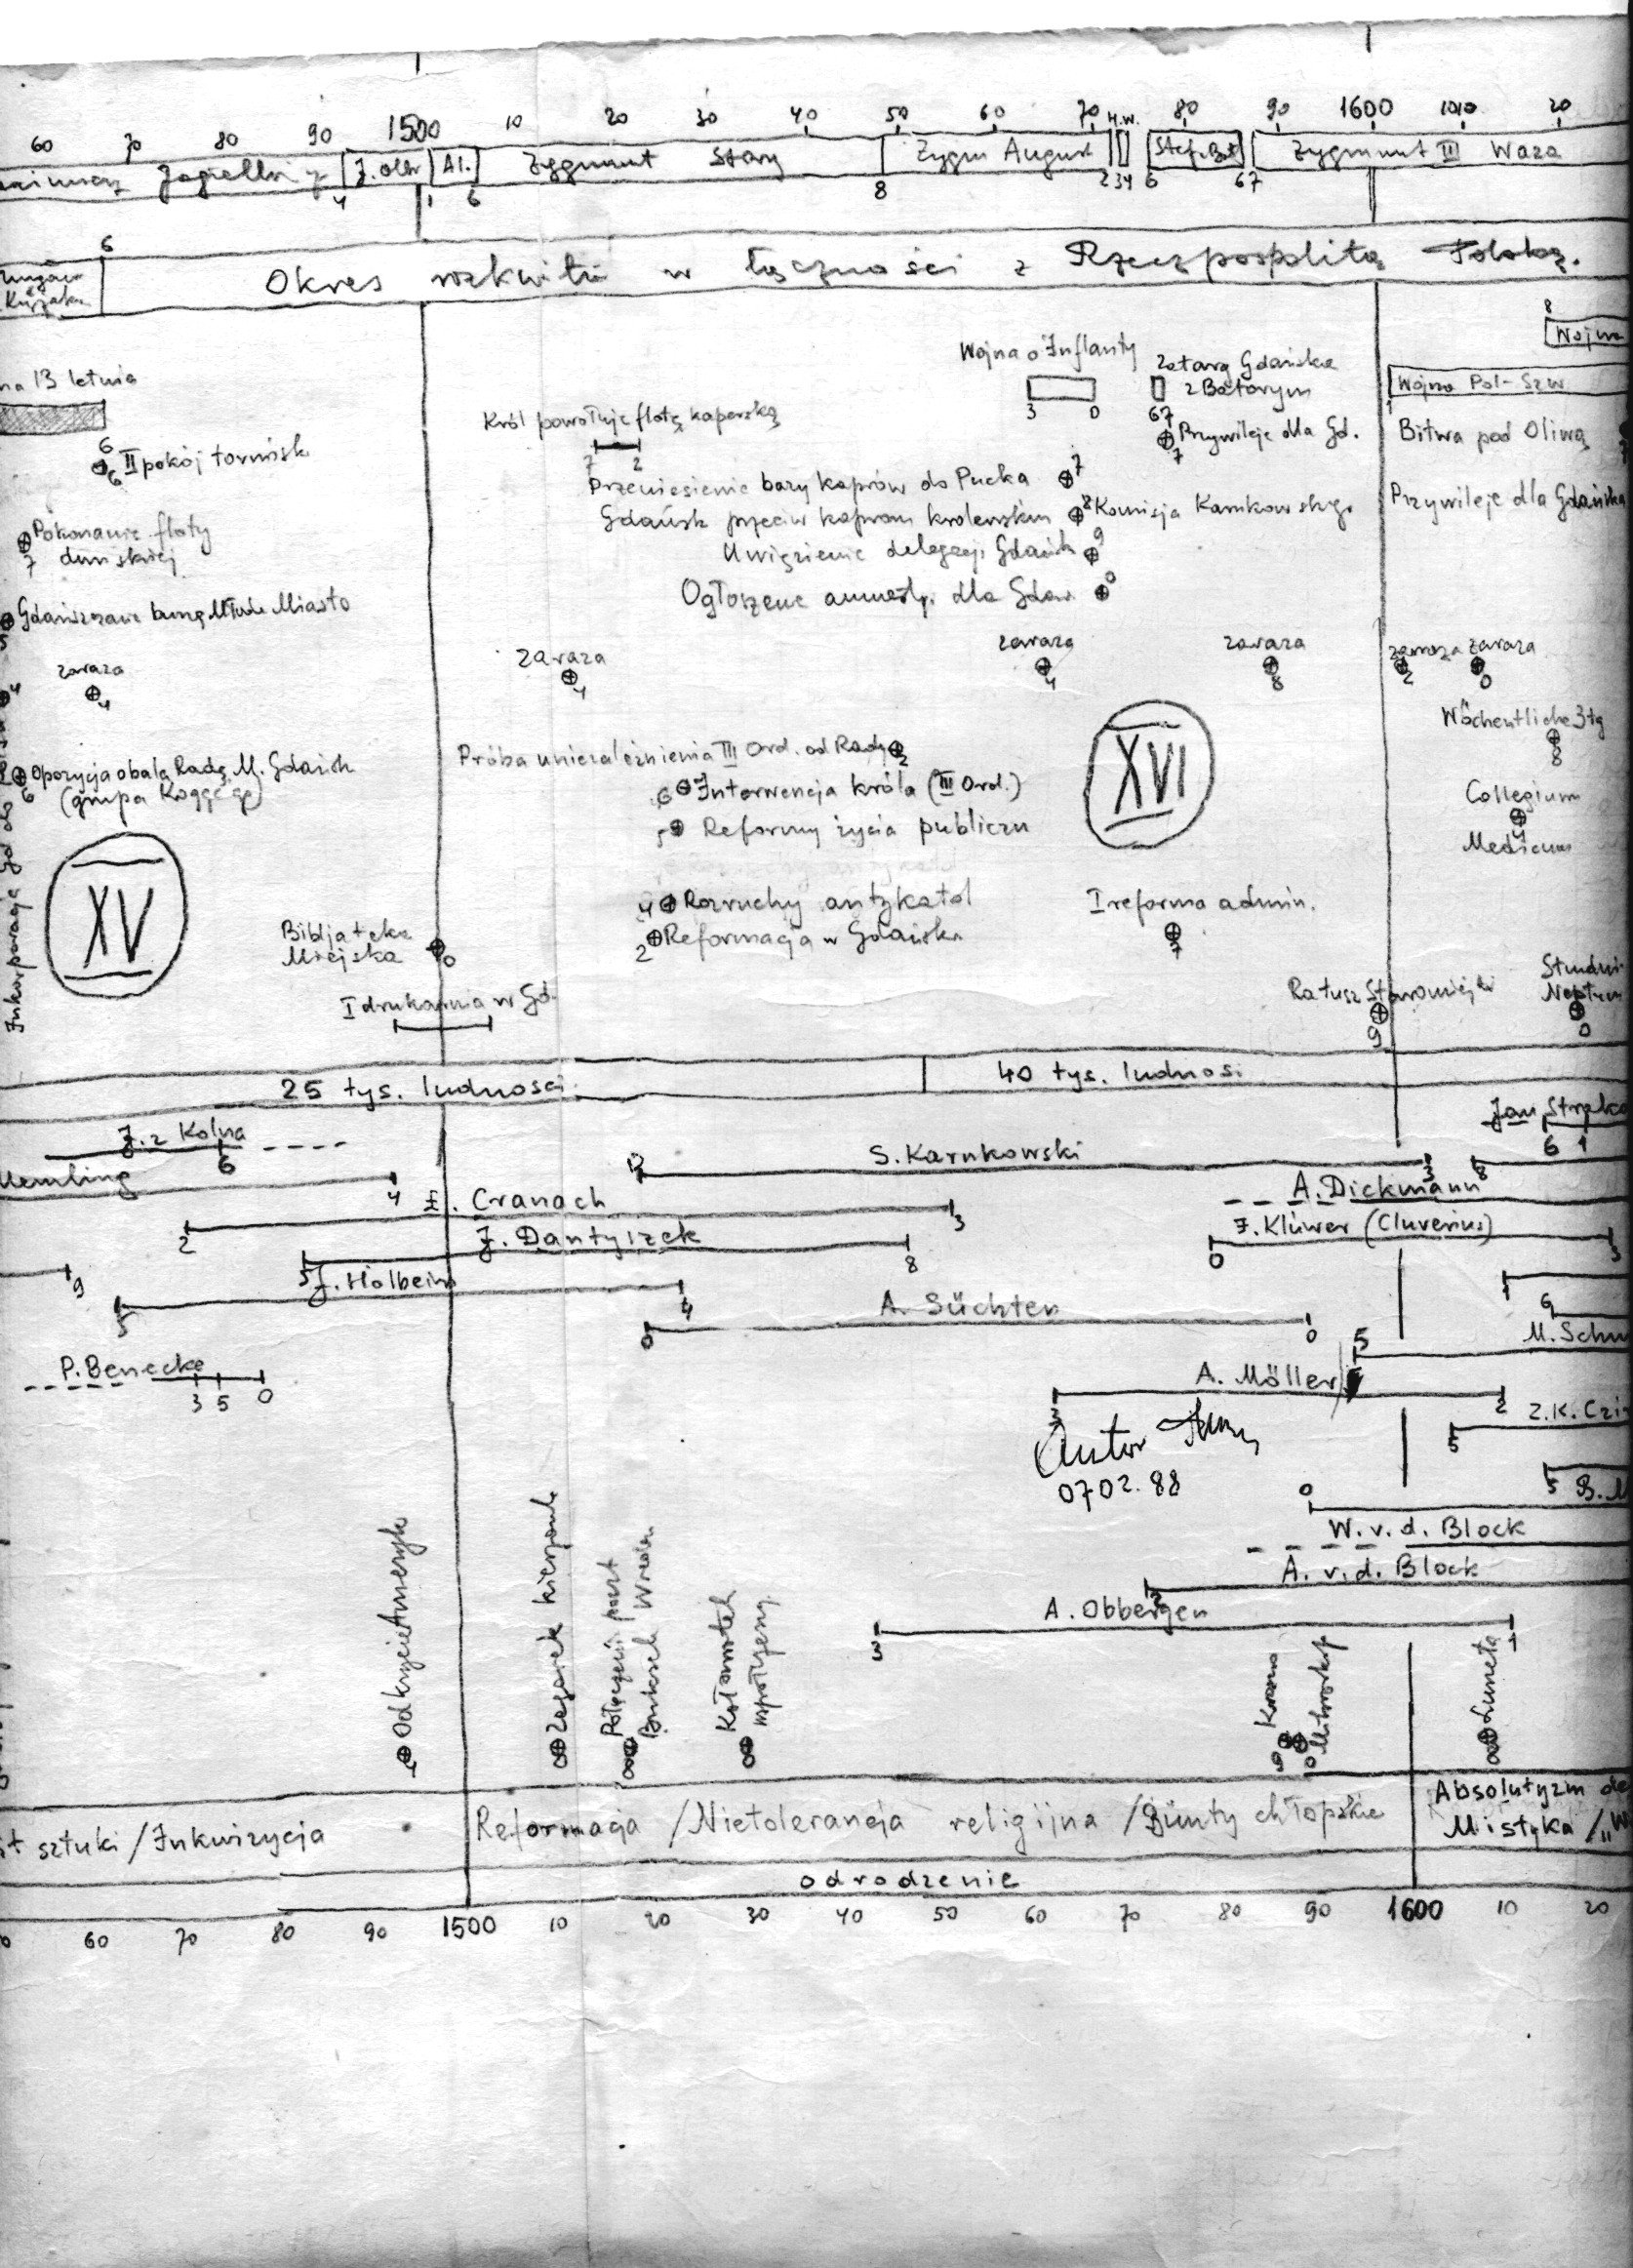 60 70 80 90 1500 10 20 30 40 50 60 70 H.W. 80 90 1600 10 20
Jagielloń J. Olbr Al. Zygmunt Stary Zygm August Stef. Bat Zygmunt III Waza
4 1 6 8 2 3 4 6 6 7
6
Okres rozkwitu w łączności z Rzecząpospolitą Polską.
8
Wojna
na 13 letnia
Wojna o Inflanty
3 0
Zatarg Gdańska
z Batorym
6 7
Wojna Pol-Szw
1
Król powołuje flotę kaperską
7 2
Przywileje dla Gd.
7
Bitwa pod Oliwą
6
6 II pokój toruńsk
Przeniesienie bazy kaprów do Pucka 7
Gdańsk przeciw kaprom królewskim 8 Komisja Karnkowskiego
Przywileje dla Gdańska
Pokonanie floty
7 duńskiej
Uwięzienie delegacji Gdańsk 9
Ogłoszenie amnesty. dla Gdań. 0
Gdańszczanie burzą Młode Miasto
5
zaraza
4
zaraza
4
zaraza
4
zaraza
8
zaraza
2
zaraza
0
Wöchentliche Ztg
8
Próba uniezależnienia III Ord. od Rady 2
XVI
Opozycja obala Radę M. Gdańsk
6 (grupa Koggego)
6 Interwencja króla (III Ord.)
5 Reformy życia publiczn
Collegium
4
Medicum
XV
4 Rozruchy antykatol
2 Reformacja w Gdańsku
I reforma admin.
7
Bibljoteka
Miejska 0
I drukarnia w Gd.
Ratusz Staromiejski
9
Studni
Neptun
0
Inkorporacja Gd do
25 tys. ludności
40 tys. ludnoś.
J. z Kolna
6
Jan Strako
6 1
Memling
4
S. Karnkowski
3
8
Ł. Cranach
2 3
A. Dickmann
J. Dantyszek
5 8
J. Klüwer (Cluverius)
0 3
9
J. Holbein
5 4
1
A. Süchten
0 0
6
M. Schu
5
P. Benecke
3 5 0
A. Möller
3 2
Z.K. Czi
5
Autor
0702.88
5 B. M
0
W. v. d. Block
A. v. d. Block
2
A. Obbergen
3 1
Odkrycie Ameryki
Zegarek kieszonk
Połączenie poczt
Bruksela Wiedeń
Kołowrotek
współczesny
9 Krosno
0 Mikroskop
Luneta
sztuki / Inkwizycja
Reformacja / Nietolerancja religijna / Bunty chłopskie
Absolutyzm de
Mistyka / „W
odrodzenie
60 70 80 90 1500 10 20 30 40 50 60 70 80 90 1600 10 20